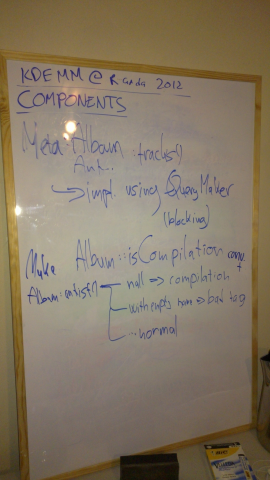 KDEMM @ Randa 2012
COMPONENTS
Meta::Album tracks()
impl. using QueryMaker
(blocking)
Make Album::isCompilation
Album::artist()
null => compilation
with empty name => bad tag
normal